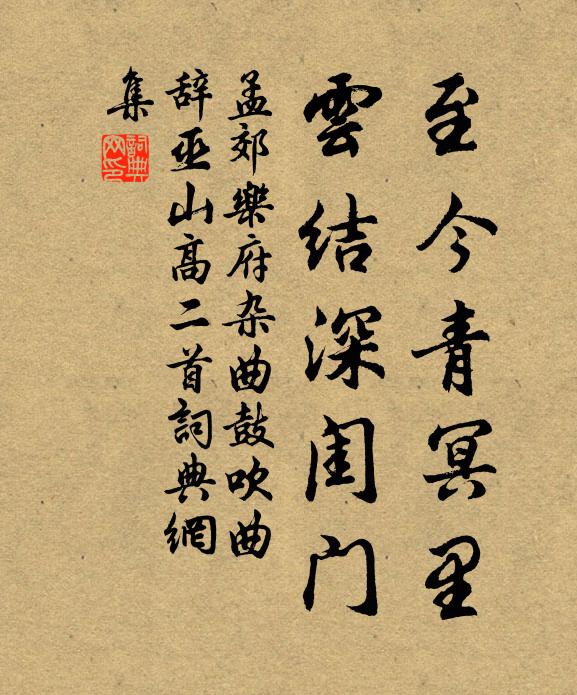 至今青冥里
雲结深闺门
孟郊樂府杂曲鼓吹曲
辞巫山高二首詞典網
集
詞典網印